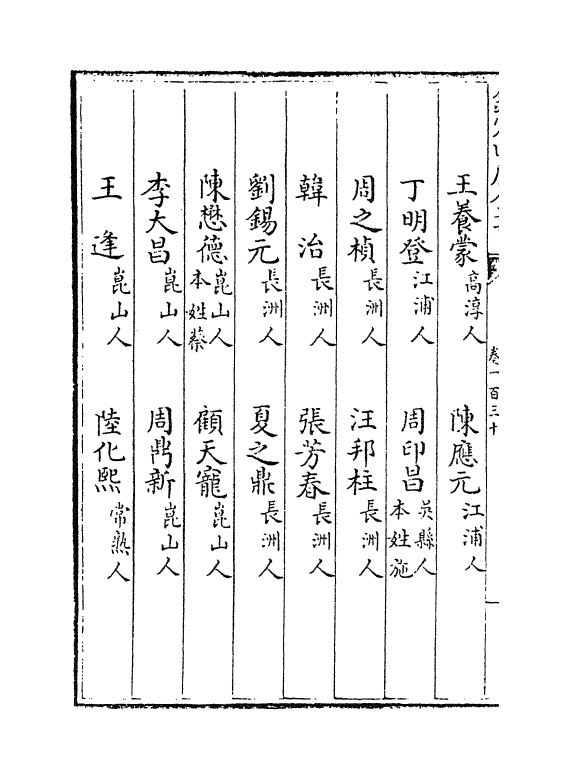 卷一百三十
王養蒙高淳人 陳應元江浦人
丁明登江浦人 周印昌吳縣人本姓施
周之楨長洲人 汪邦柱長洲人
韓治長洲人 張芳春長洲人
劉錫元長洲人 夏之鼎長洲人
陳懋德崑山人本姓蔡 顧天寵崑山人
李大昌崑山人 周鼎新崑山人
王逢崑山人 陸化熙常熟人